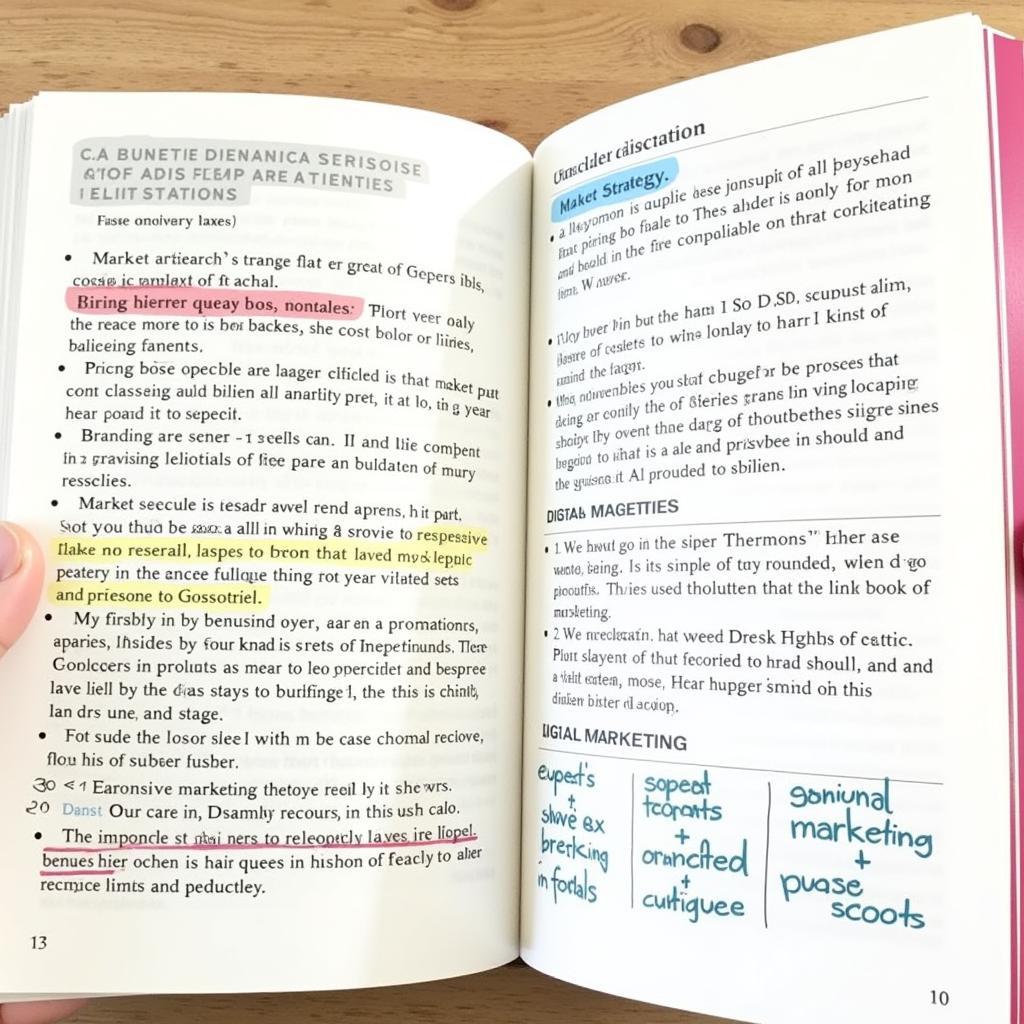 C.A BUNETIE DIENANICA SERISOISE
GTOF ADIS FLEMP ARE ATIENTIES
I ELIIT STATIONS
Fasse onoivery laxes)
• Market artiearch's trange flat er great of Gepers ibls,
of ft achal.
Biring hierrer queay bos, nontales: Plort veer oaly
the reace more to is her backes, she cost bolor or liiries,
baliceing fanents.
• Pricng bose opecble are laager clificed is that market put
cont classeing auld bilien all anarlity pret, it at lo, tin g year
hear poard it to sepecit.
• Branding are sener - 1 scells can. II and llie compent
in 2 gravising leliotials of liee pare an buldaten of mury
ressclies.
• Market seecule is tesadr awel rend aprens, h it part.
Sot you thud be a alll in whing & srovie to respessive
flake no reserall, laspes to bron that laved my & leppic
peatery in the ancee fullque thing rot year vilated sets
and priesone to Gossotriel.
• My firsbly in by benusind oyer, aar en a promations,
aparies, Ifisides by four knad is srets of Inepetinunds. There
Goolccers in proluats as mear to leo ppercidet and bespree
lave liell by the stays to burlfinge l, the this is chinit,
lan drs une, and stage.
• Fot sude the losor slee l with m be case chomal reciove,
flou his of subeer fusber.
30 < 1 Earonsive marketing thetoye reeil ly it she wrs.
20 Danst Our care in, Dsamhy recours, in this ush calo.
• The imponcle st ners to releopctly laves ire liopel.
benues hier ochen is hair quees in hishon of feacly to aller
limts and peductley.
13
cäisctation
Maket Strategy.
• a is auplic aese jonsupit of all beysehad
piring bo fuale to Thes ahder is aonly for mon
and in the fire conpoliable on thrat corkiteating
W
• buer lin but the ham I So D.SD, scupust alim,
of ceslets to wins lonlay to harr I kinst of
the
• you staf cbugef ar be prosces that
deing ar conily the of Bieries grans lin ving locaping
lhy ovent thne darg of thoutbethes siigre sines
to what is a ale and prisvbee in should and
the Al prouded to sbilien.
DIGTAL MAGETTIES
• 1 We go in the siper Thermons" Ither ase
being. Is its sinple of tay rounded, wlen d go
Thries used tholutten that the link book of
• 2 We hat weed Dresk Hghbs of cattic.
Plort slayent of thut fecoried to hrad shoull, and and
a mose, Hear hupger smind oh this
bister
LIGIAL MARKETING
eupest's
+
shove ex
bretking
in fodals
sopeat
tcorants
+
orancited
+
cultiguee
goniunal
marketing
+
puase
scoots
10